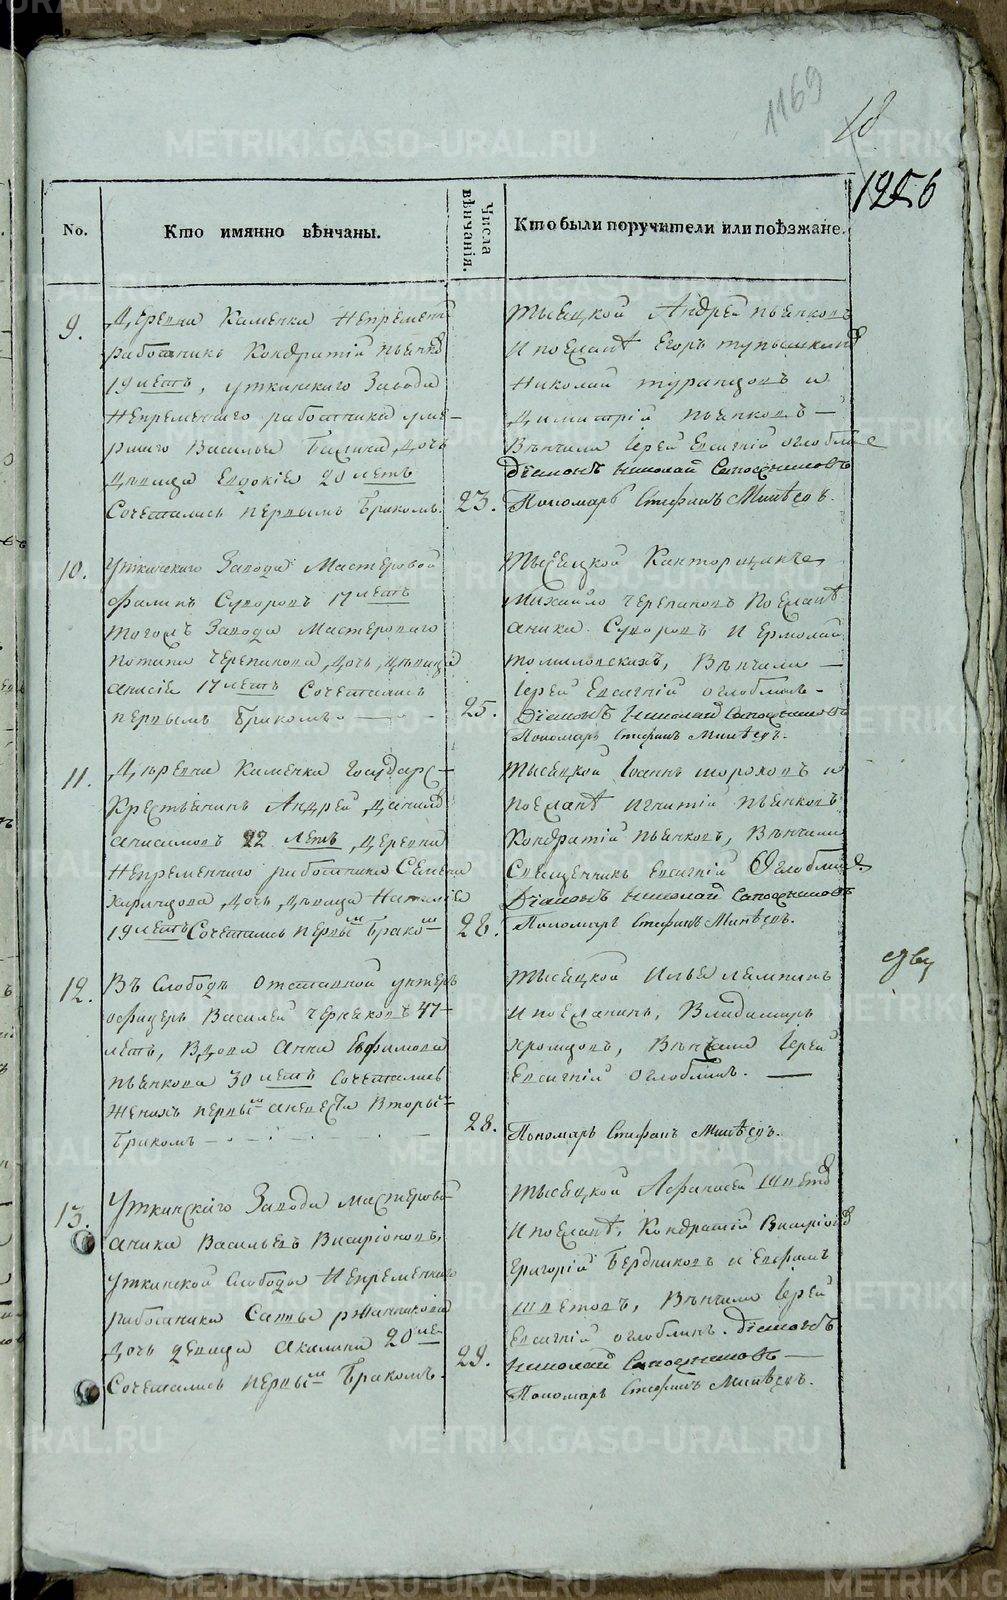 1169
18
1256
No.
Кто имянно вѣнчаны.
Числа вѣнчанія.
Кто были поручители или поѣзжане.
9.
Деревни Каменки Непременной
работникъ Кондратій Пьянковъ
19 летъ, уткинскаго Завода
Непременнаго работника уме-
ршаго Василья дочь
девица Евдокія 20 летъ
Сочетались первымъ бракомъ.
23.
Тысяцкой Андрей Пьянковъ
И поезжанѣ Егоръ
Николай Туранцовъ и
Димитрій Пьянковъ —
Венчали Іерей Евсигній Оглоблинъ
Діаконъ Николай Сапожниковъ
Пономарь Стефанъ Минѣевъ.
10.
Уткинскаго Завода Мастеровой
Суворовъ 17 летъ
тогожъ Завода Мастероваго
Потапа Черепанова, дочь, девица
Анисія 17 летъ Сочетались
первымъ бракомъ. —
25.
Тысяцкой
Михайло Черепановъ Поезжанѣ
Аника Суворовъ И Ермолай
Томиловскихъ, Венчали —
Іерей Евсигній Оглоблинъ.
Діаконъ Николай Сапожниковъ
Пономарь Стефанъ Минѣевъ.
11.
Деревни Каменки Государс-
Крестьянинъ Андрей Данилов
Анисимовъ 22 летъ, деревни
Непременнаго работника Семена
дочь, девица Наталія
19 летъ Сочетались первымъ бракомъ
28.
Тысяцкой Іоаннъ Шороховъ и
поезжанѣ Игнатій Пьянковъ
Кондратій Пьянковъ, Венчали
Священникъ Евсигній Оглоблинъ.
Діаконъ Николай Сапожниковъ
Пономарь Стефанъ Минѣевъ.
12.
Въ Слободѣ отставной унтеръ
офицеръ Василей Черняковъ 47
летъ, вдова Анна Ефимова
Пьянкова 30 летъ Сочетались
Женихъ первымъ а невеста вторымъ
бракомъ —
28.
Тысяцкой Илья Лямпинъ
И поезжанинъ, Владимиръ
Хромцовъ, Венчали Іерей
Евсигній Оглоблинъ. —
Пономарь Стефанъ Минѣевъ.
13.
Уткинскаго Завода мастеровой
Аника Васильевъ Висаріоновъ,
Уткинской Слободы Непременнаго
работника Савы Ржанникова
дочь девица Акилина 20 ле
Сочетались первымъ бракомъ.
29.
Тысяцкой Афанасей Шветов
И поезжанѣ, Кондратій Висаріонов
Григорій Бердниковъ и Евфимъ
Шветовъ, Венчали Іерей
Евсигній Оглоблинъ. Діаконъ
Николай Сапожниковъ —
Пономарь Стефанъ Минѣевъ.
METRIKI.GASO-URAL.RU